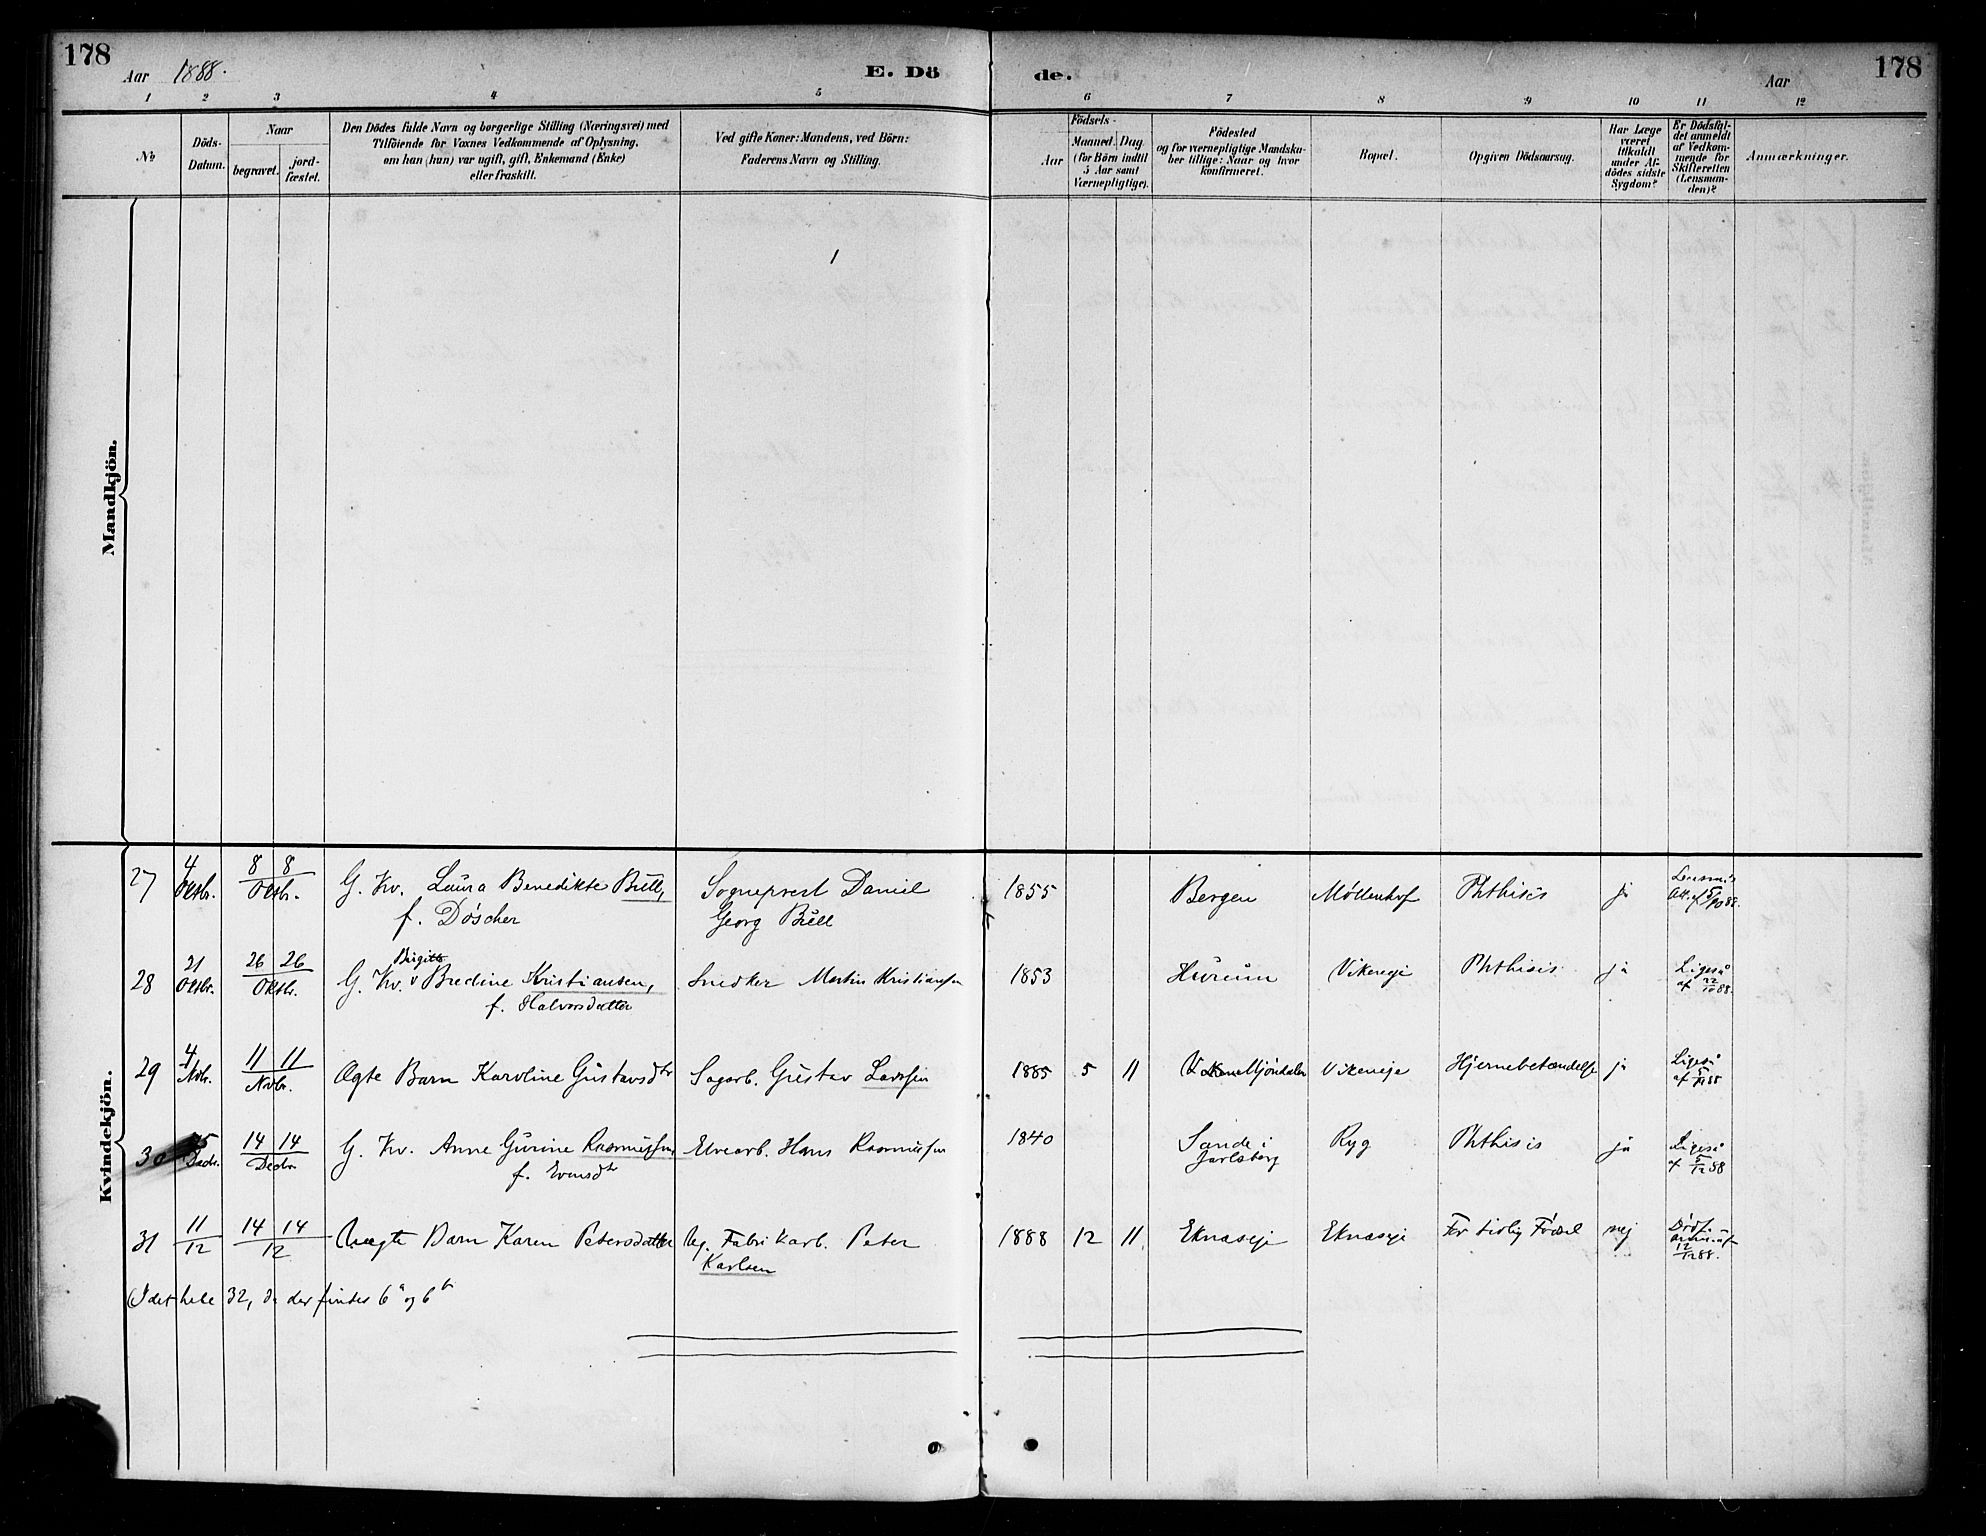 178
Aar 1888.
E. Dö
de.
Aar
178
1 2 3 4 5 6 7 8 9 10 11 12
No
Döds-
Datum.
Naar
begravet.
jord-
fæstet.
Den Dödes fulde Navn og borgerlige Stilling (Næringsvei) med
Tilföiende for Voxnes Vedkommende af Oplysning,
om han (hun) var ugift, gift, Enkemand (Enke)
eller fraskilt.
Ved gifte Koner: Mandens, ved Börn:
Faderens Navn og Stilling.
Födsels-
Aar
Maaned. Dag
(for Börn indtil
5 Aar samt
Værnepligtige).
Födested
og for værnepligtige Mandska-
ber tillige: Naar og hvor
konfirmeret.
Bopæl.
Opgiven Dödsaarsag.
Har Læge
været
tilkaldt
under Af-
dödes sidste
Sygdom?
Er Dödsfal-
det anmeldt
af Vedkom-
mende for
Skifteretten
(Lensman-
den)?
Anmærkninger.
Mandkjön.
Kvindekjön.
27 4 Oktbr. 8 8 Oktbr. G. Kv. Laura Benedikte Bull, Sogneprest Daniel 1855 Bergen Möllenhof Phthisis ja
f. Döscher Georg Bull
Birgitte
28 21 Oktbr. 26 26 Oktbr. G. Kv. Bredine Kristiansen, Snedker Martin Kristiansen 1853 Hurum Vikeneje Phthisis ja Ligeså
f. Halvorsdatter af 22/10 88.
29 4 Nvbr. 11 11 Nvbr. Ægte Barn Karoline Gustavsdtr Sagarb. Gustav Larssen 1885 5 11 Mjöndalen Vikeneje Hjernebetændelse ja Ligeså
af 5/11 88
30 5 Decbr. 14 14 Decbr G. Kv. Anne Gurine Rasmussen, Elvearb. Hans Rasmussen 1840 Sande i Ryg Phthisis ja Ligeså
f. Evensdtr Jarlsberg af 5/12 88
31 11/12 14 14 12 Uægte Barn Karen Petersdatter Ug. Fabrikarb. Peter 1888 12 11 Eknæseje Eknæseje For tidlig Födsel nej
Karlsen 12/12 88.
I det hele 32, da der findes 6a og 6b